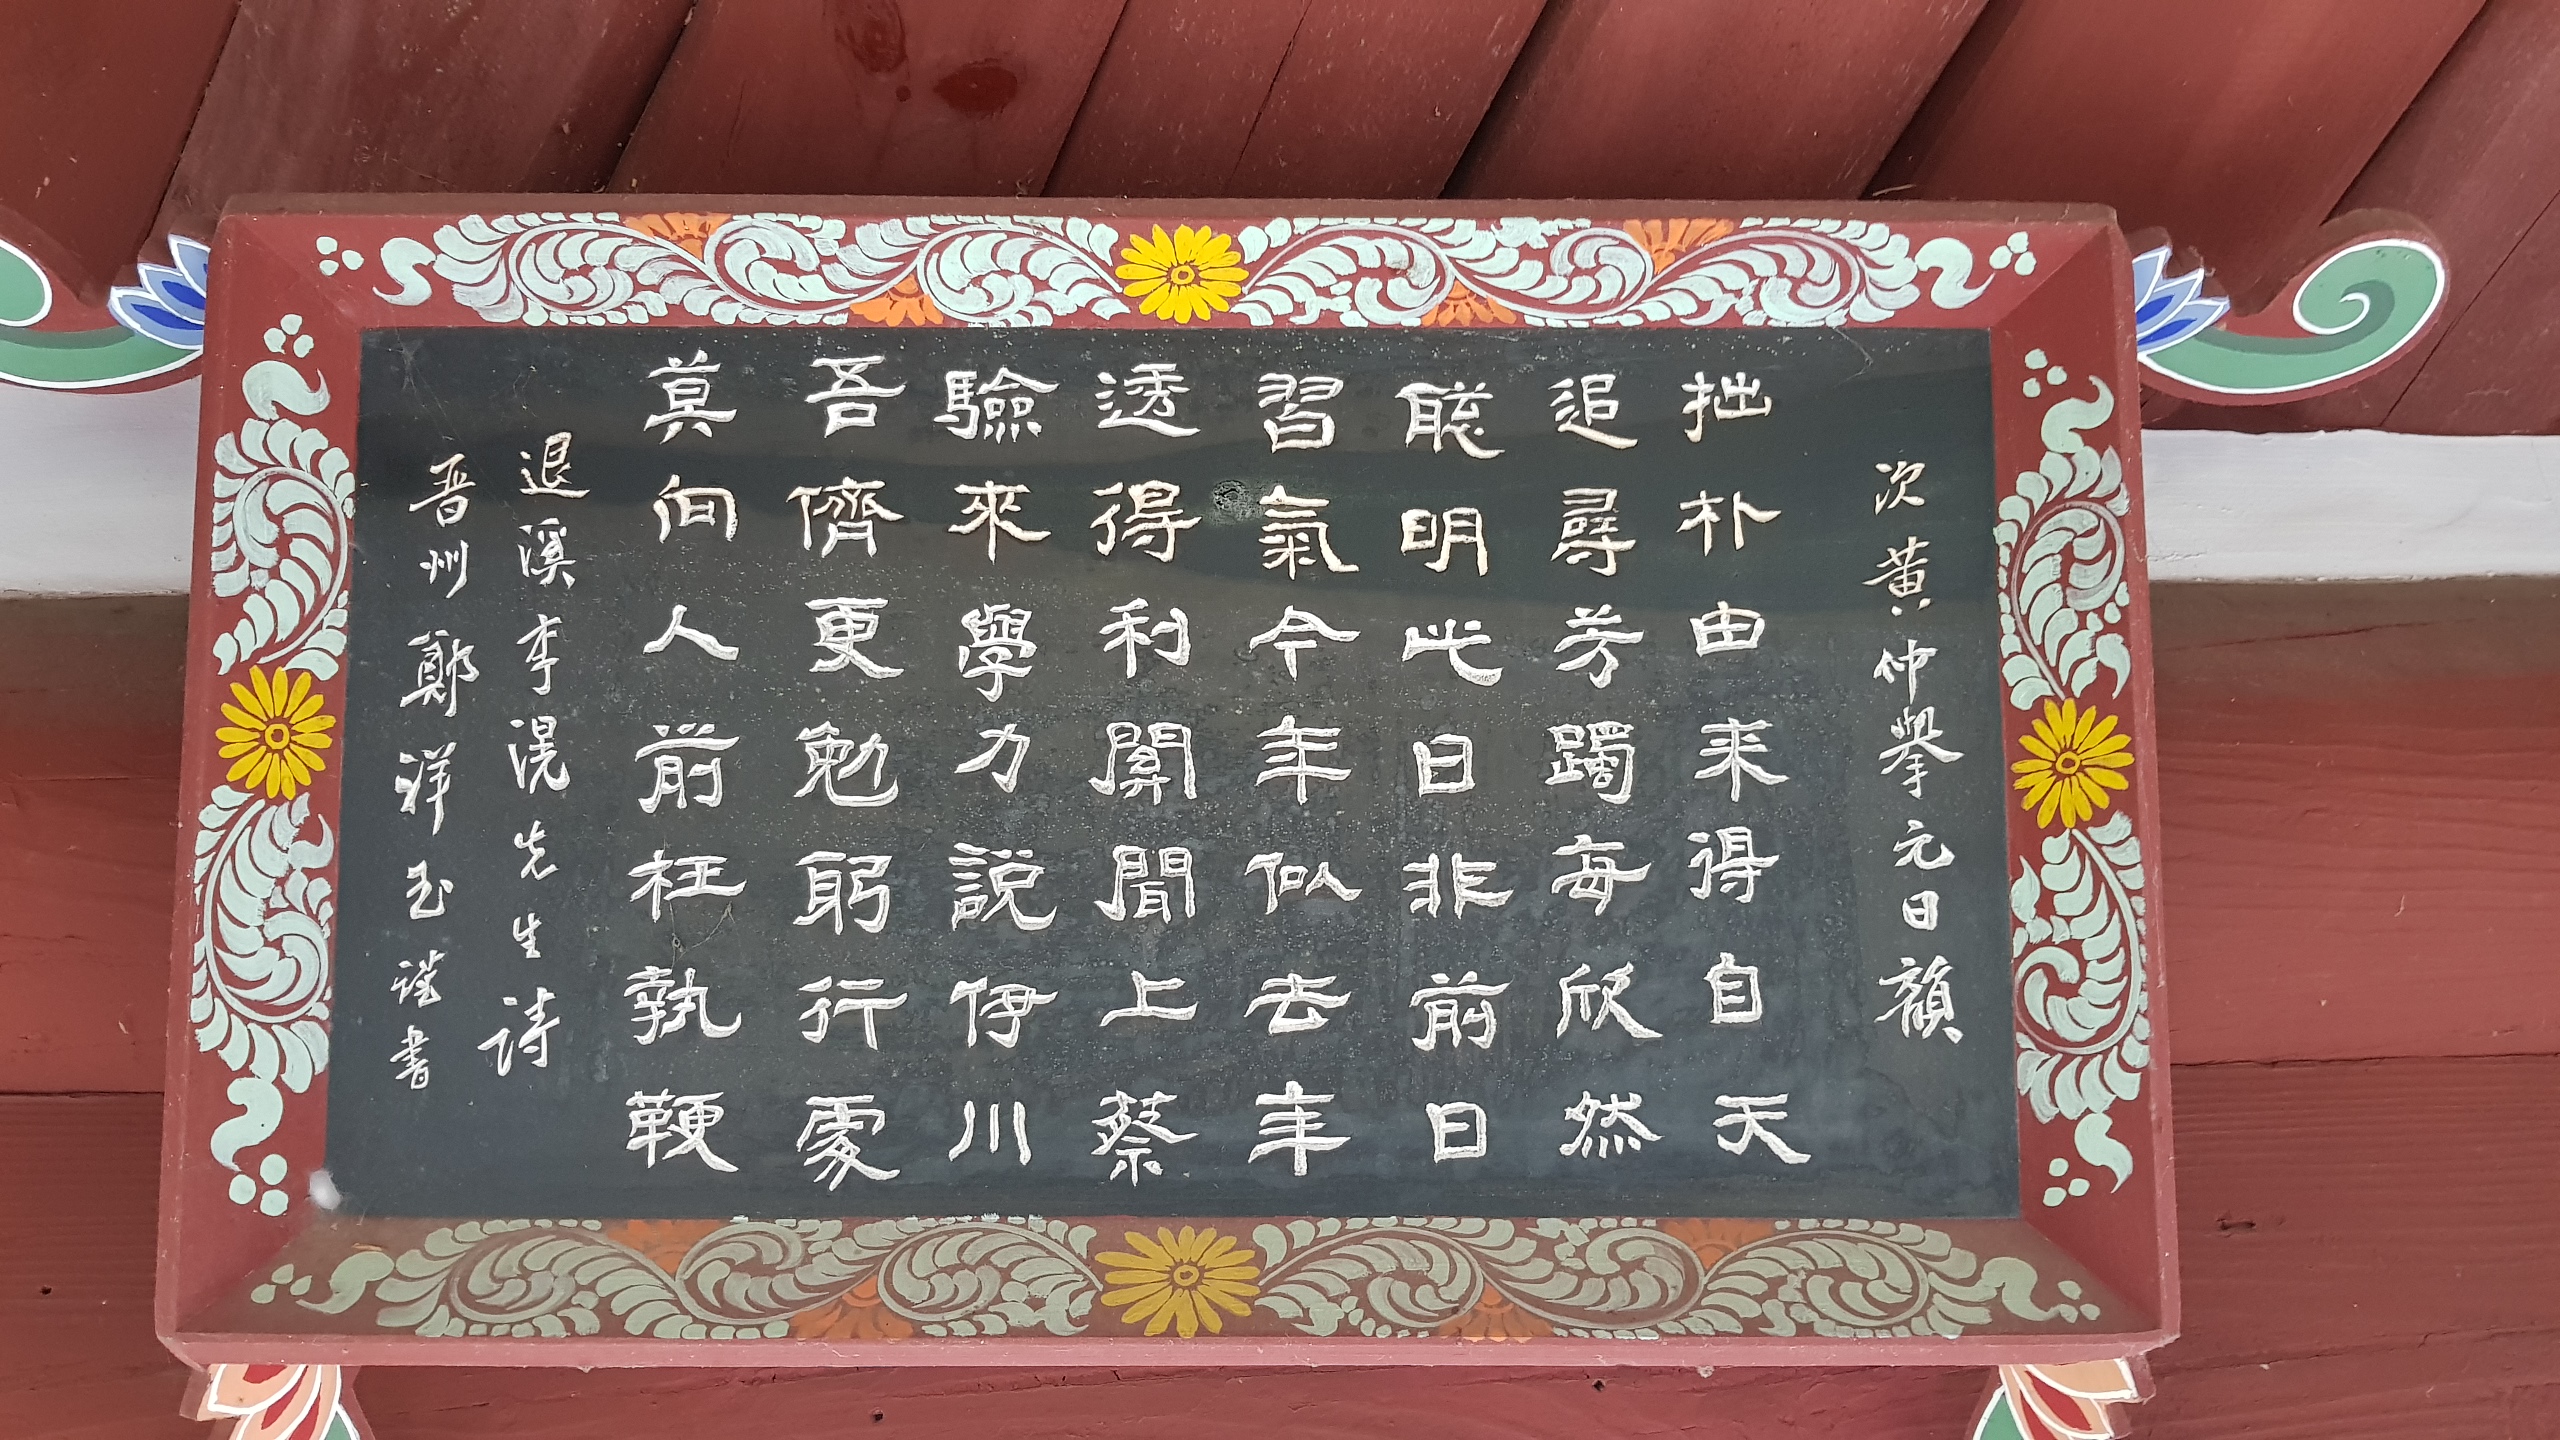 次黃仲擧元日韻
拙朴由来得自天
追尋芳躅每欣然
聡明此日非前日
習氣今年似去年
透得利關聞上蔡
驗來學力說伊川
吾儕更勉躬行處
莫向人前枉執鞭
退溪李滉先生詩
晋州鄭洋玉謹書